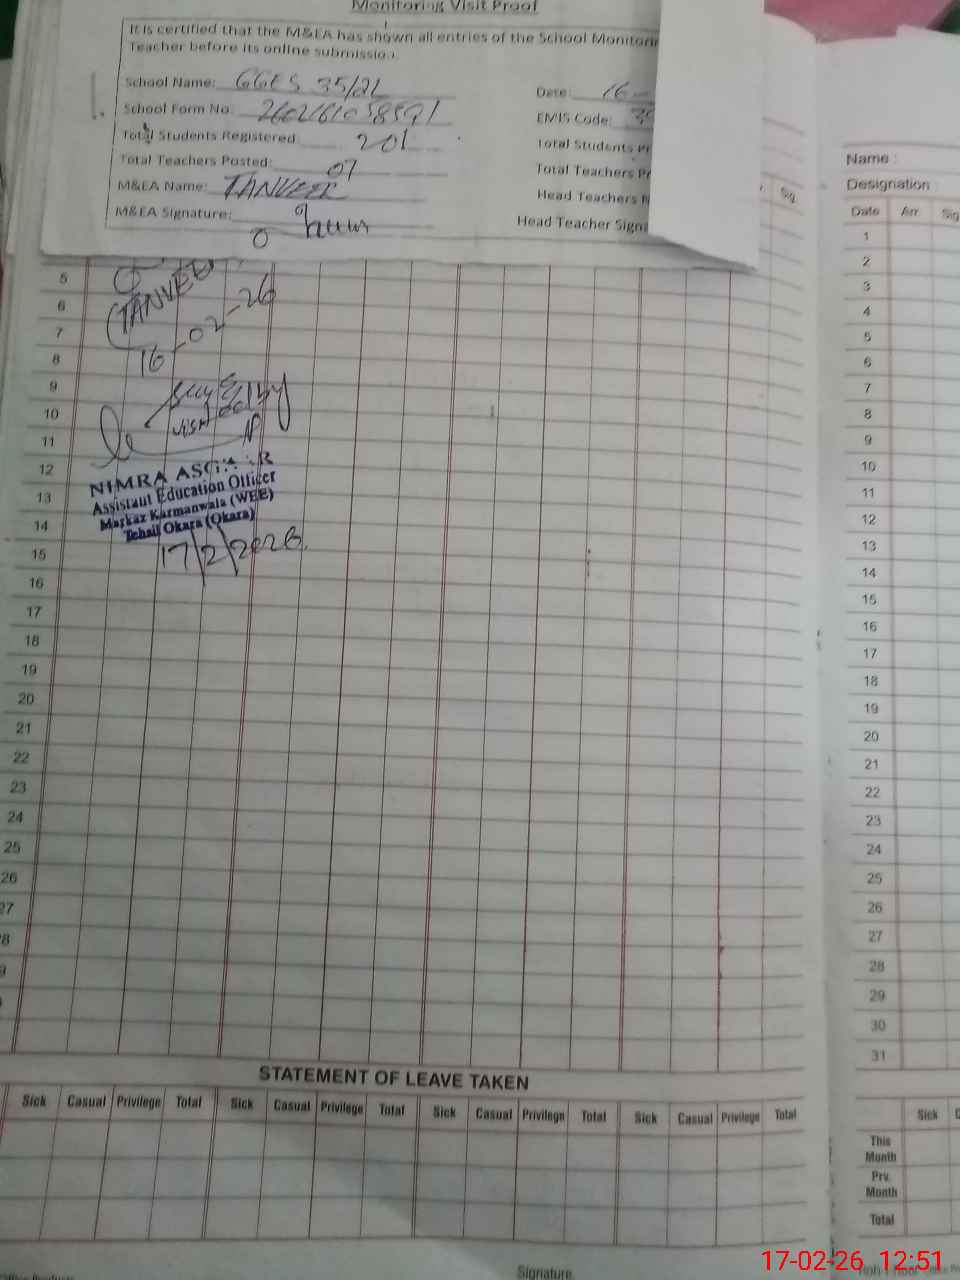 Monitoring Visit Proof
It is certified that the M&EA has shown all entries of the School Monitorin
Teacher before its online submission.
1.
School Name: GGES 35/2L
Date: 16-
School Form No.
EMIS Code:
Total Students Registered 201
Total Students Pr
Total Teachers Posted: 07
Total Teachers Pr
M&EA Name: TANVEER
Head Teachers N
M&EA Signature:
Head Teacher Signa
Sig
5
6
7
8
9
10
11
12
13
14
15
16
17
18
19
20
21
22
23
24
25
26
27
(TANVEE
16-02-26
visit
NIMRA ASGHAR
Assistant Education Officer
Markaz Karmanwala (WEE)
Tehsil Okara (Okara)
17/2/2026.
STATEMENT OF LEAVE TAKEN
Sick Casual Privilege Total Sick Casual Privilege Total Sick Casual Privilege Total Sick Casual Privilege Total
Signature
Name :
Designation
Date Arr. Sig
1
2
3
4
5
6
7
8
9
10
11
12
13
14
15
16
17
18
19
20
21
22
23
24
25
26
27
28
29
30
31
Sick C
This
Month
Prv.
Month
Total
17-02-26 12:51